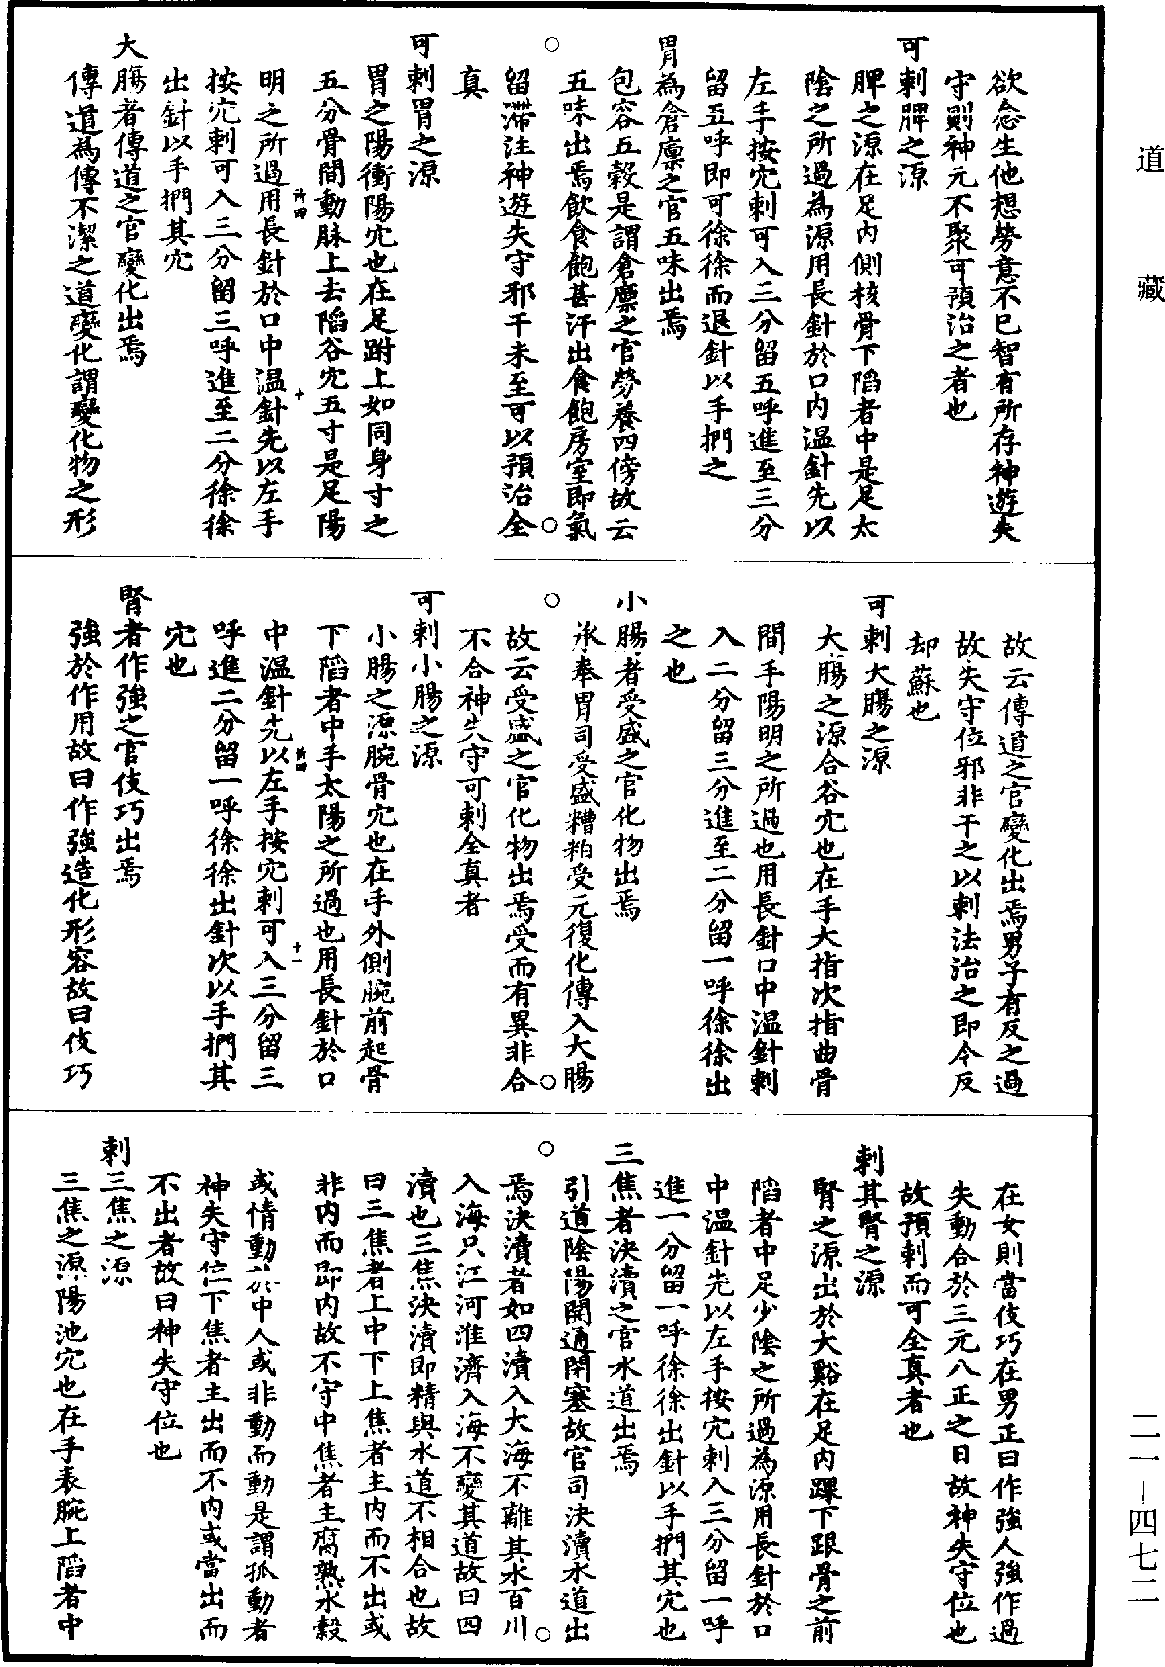 道藏
欲念生他想勞意不已智有所存神遊失
守則神元不聚可預治之者也
可刺脾之源
脾之源在足內側核骨下陷者中是足太
陰之所過為源用長針於口內温針先以
左手按穴刺可入三分留五呼進至三分
留五呼即可徐徐而退針以手捫之
胃為倉廪之官五味出焉
包容五穀是謂倉廪之官勞養四傍故云
五味出焉飲食飽甚汗出食飽房室即氣
留滯注神遊失守邪干未至可以預治全
真
可刺胃之源
胃之陽衝陽穴也在足跗上如同身寸之
五分骨間動脉上去陷谷穴五寸是足陽
明之所過用長針於口中温針先以左手
按穴刺可入三分留三呼進至二分徐徐
出針以手捫其穴
大腸者傳道之官變化出焉
傳道為傳不潔之道變化謂變化物之形
故云傳道之官變化出焉男子有反之過
故失守位邪非干之以刺法治之即令反
却蘇也
可刺大腸之源
大腸之源合谷穴也在手大指次指曲骨
間手陽明之所過也用長針口中温針刺
入二分留三分進至二分留一呼徐徐出
之也
小腸者受盛之官化物出焉
承奉胃司受盛糟粕受元復化傳入大腸
故云受盛之官化物出焉受而有異非合
不合神失守可刺全真者
可刺小腸之源
小腸之源腕骨穴也在手外側腕前起骨
下陷者中手太陽之所過也用長針於口
中温針先以左手按穴刺可入三分留三
呼進二分留一呼徐徐出針次以手捫其
穴也
腎者作強之官伎巧出焉
強於作用故曰作強造化形容故曰伎巧
在女則當伎巧在男正曰作強人強作過
失動合於三元八正之日故神失守位也
故預刺而可全真者也
刺其腎之源
腎之源出於大谿在足內踝下跟骨之前
陷者中足少陰之所過為源用長針於口
中温針先以左手按穴刺入三分留一呼
進一分留一呼徐徐出針以手捫其穴也
三焦者決瀆之官水道出焉
引道陰陽開通閉塞故官司決瀆水道出
焉決瀆者如四瀆入大海不離其水百川
入海只江河淮濟入海不變其道故曰四
瀆也三焦決瀆即精與水道不相合也故
曰三焦者上中下上焦者主內而不出或
非內而即內故不守中焦者主腐熟水穀
或情動於中人或非動而動是謂孤動者
神失守位下焦者主出而不內或當出而
不出者故曰神失守位也
刺三焦之源
三焦之源陽池穴也在手表腕上陷者中
二一—四七二